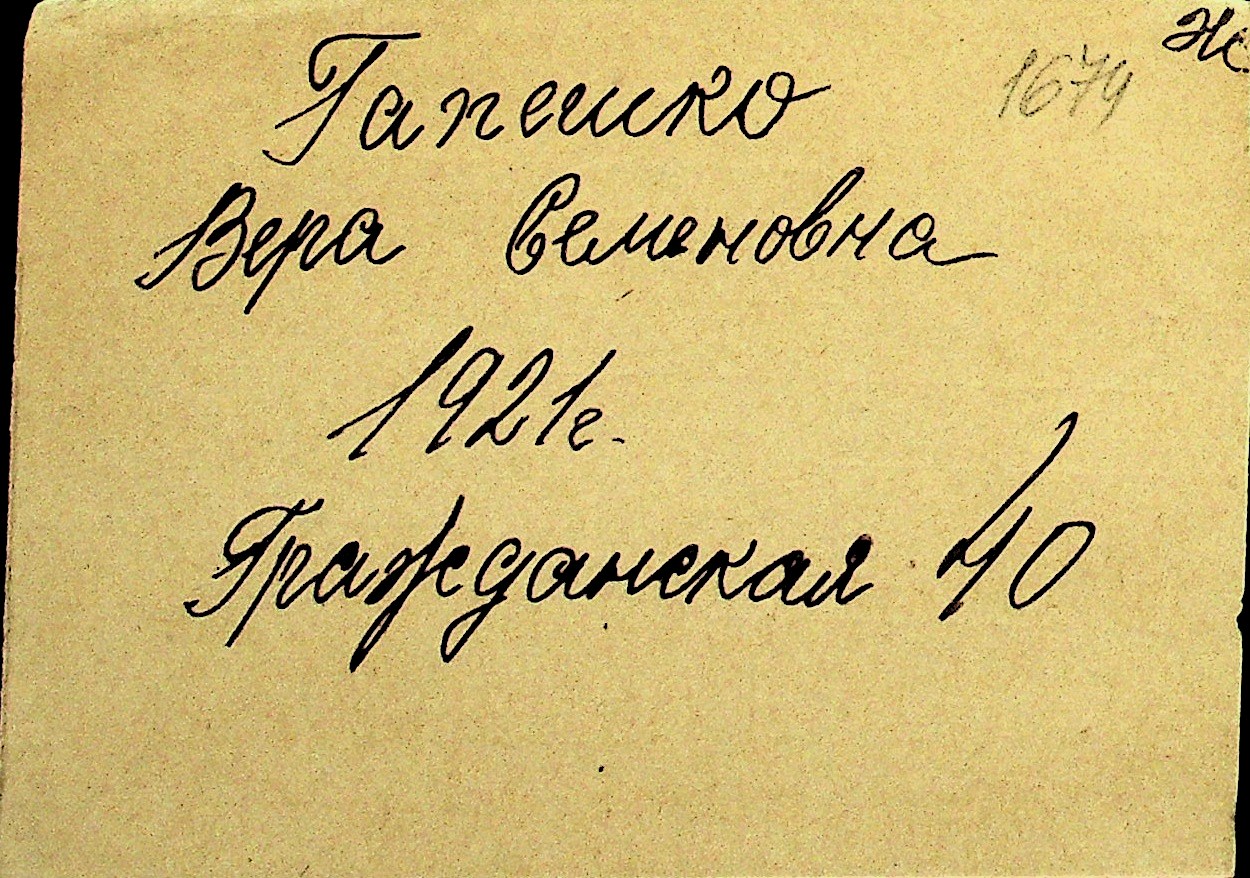 ж
1674
Гапешко
Вера Семеновна
1921г.
Гражданская 40